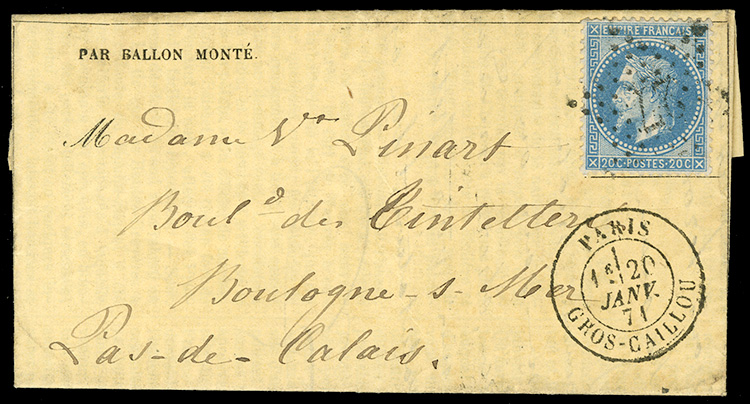 PAR BALLON MONTÉ.
EMPIRE FRANÇAIS
20 C · POSTES · 20 C
Madame Vve Pinart
Boul.d des Tintelleries
Boulogne-s-Mer
Pas-de-Calais.
PARIS
1E 20
JANV.
71
GROS-CAILLOU